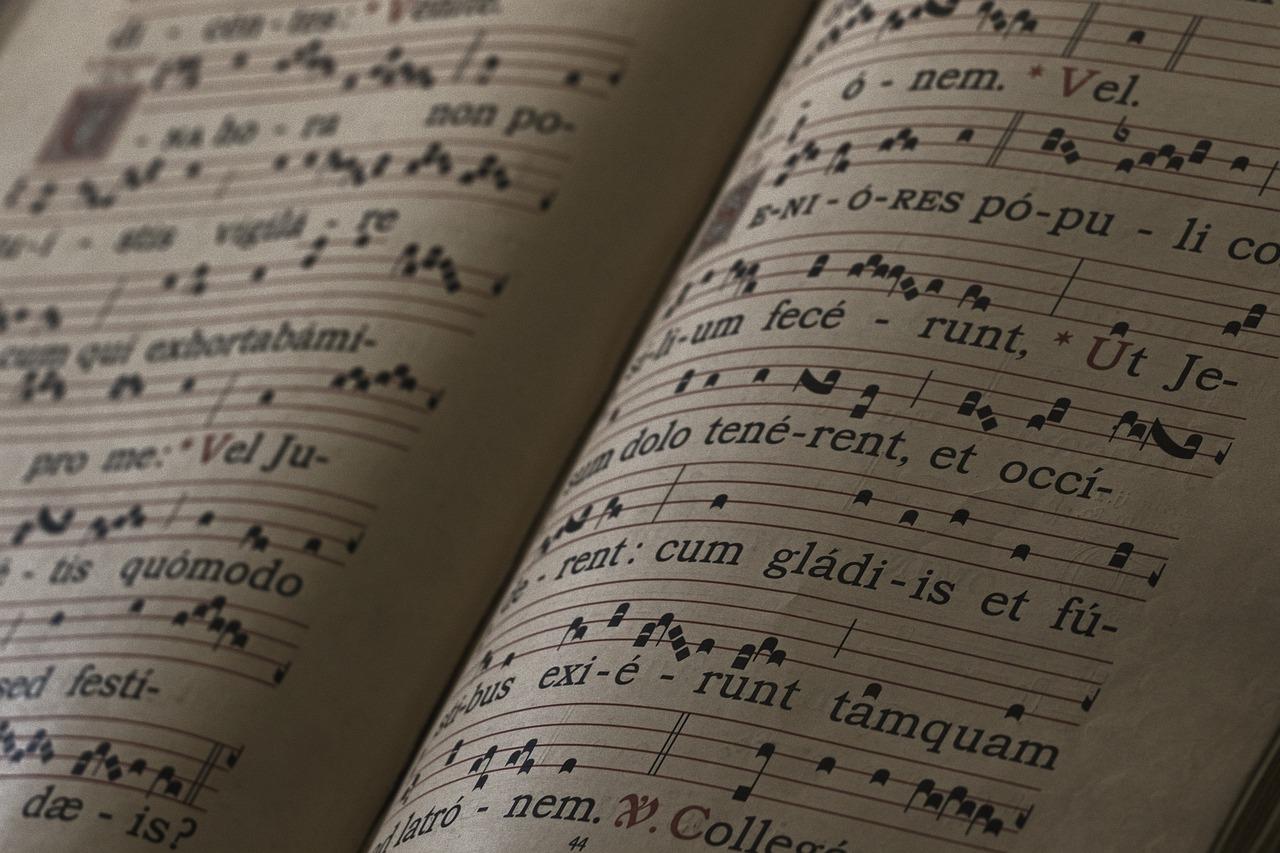 di - cén - tes: * Venite.
U - NA ho - ra non po-
tu - í - stis vigilá - re
cum qui exhortabámi-
pro me: * Vel Ju-
dé - tis quómodo
sed festí-
dæ - is?
ó - nem. * Vel.
SE-NI - Ó-RES pó-pu - li co
si-li-um fecé - runt, * Ut Je-
sum dolo tené-rent, et occí-
de - rent: cum gládi-is et fú-
sti-bus exi-é - runt tamquam
ad latró - nem. ℣. Collegé
44